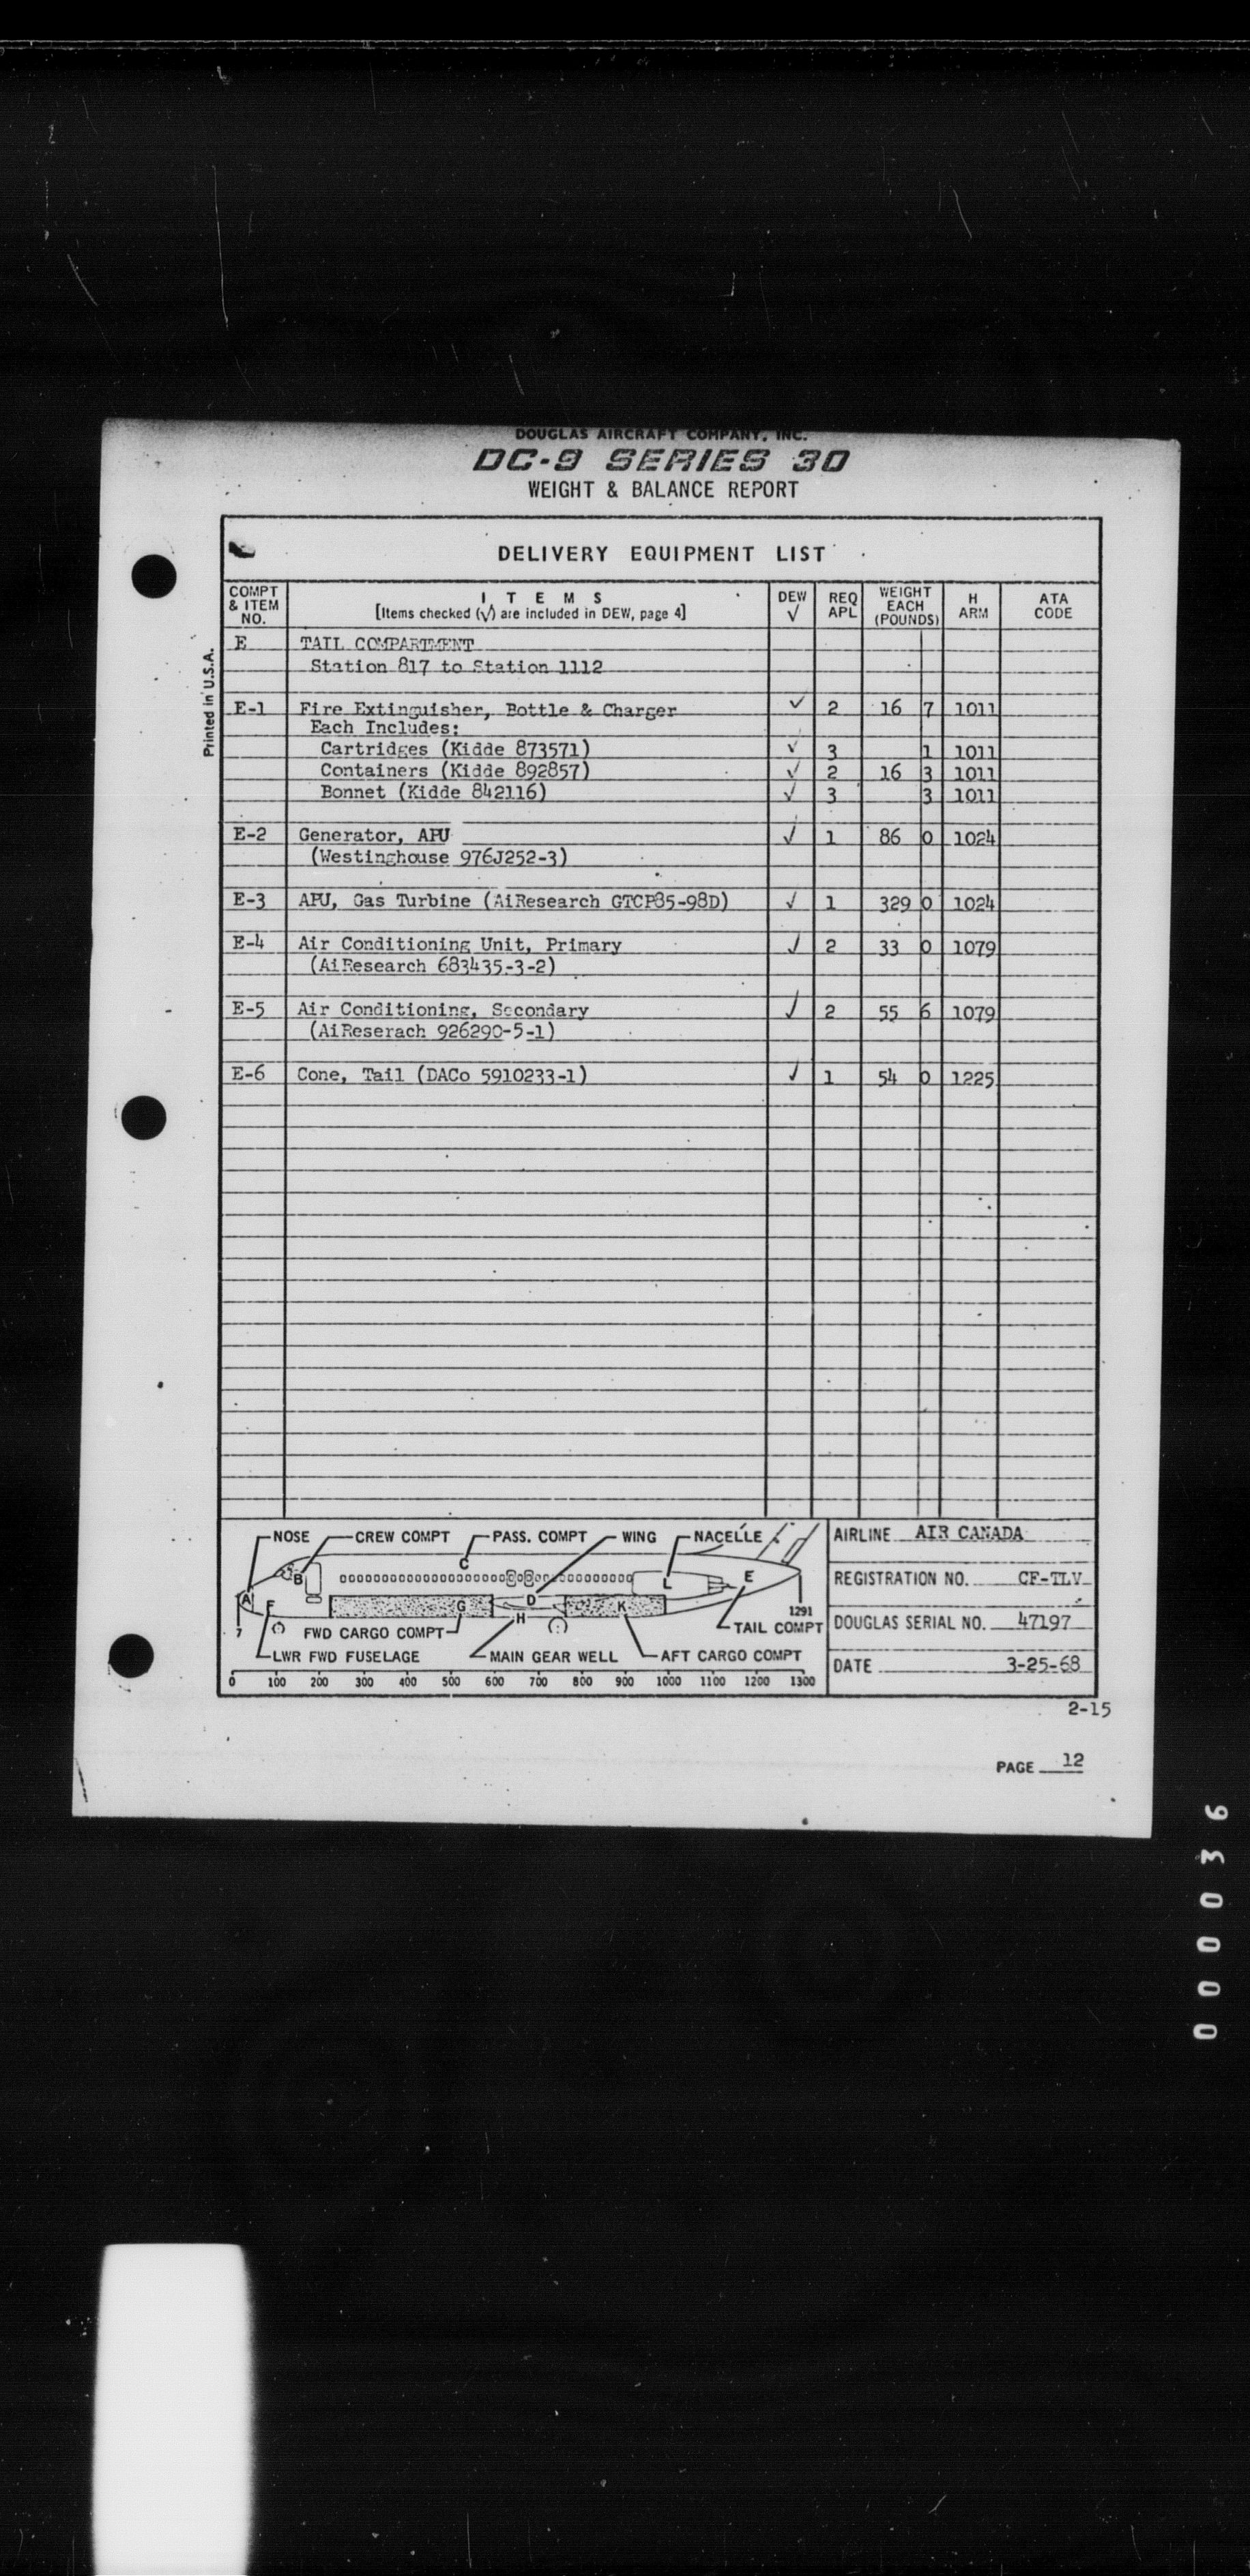 DOUGLAS AIRCRAFT COMPANY, INC.
DC-9 SERIES 30
WEIGHT & BALANCE REPORT
Printed in U.S.A.
DELIVERY EQUIPMENT LIST
COMPT & ITEM NO. I T E M S [Items checked (√) are included in DEW, page 4] DEW √ REQ APL WEIGHT EACH (POUNDS) H ARM ATA CODE
E TAIL COMPARTMENT
Station 817 to Station 1112
E-1 Fire Extinguisher, Bottle & Charger √ 2 16 7 1011
Each Includes:
Cartridges (Kidde 873571) √ 3 1 1011
Containers (Kidde 892857) √ 2 16 3 1011
Bonnet (Kidde 842116) √ 3 3 1011
E-2 Generator, APU √ 1 86 0 1024
(Westinghouse 976J252-3)
E-3 APU, Gas Turbine (AiResearch GTCP85-98D) √ 1 329 0 1024
E-4 Air Conditioning Unit, Primary √ 2 33 0 1079
(AiResearch 683435-3-2)
E-5 Air Conditioning, Secondary √ 2 55 6 1079
(AiReserach 926290-5-1)
E-6 Cone, Tail (DACo 5910233-1) √ 1 54 0 1225
NOSE CREW COMPT PASS. COMPT WING NACELLE
C
B L E
A F G D K
H
7 1291
FWD CARGO COMPT TAIL COMPT
LWR FWD FUSELAGE MAIN GEAR WELL AFT CARGO COMPT
0 100 200 300 400 500 600 700 800 900 1000 1100 1200 1300
AIRLINE AIR CANADA
REGISTRATION NO. CF-TLV
DOUGLAS SERIAL NO. 47197
DATE 3-25-68
2-15
PAGE 12
000036